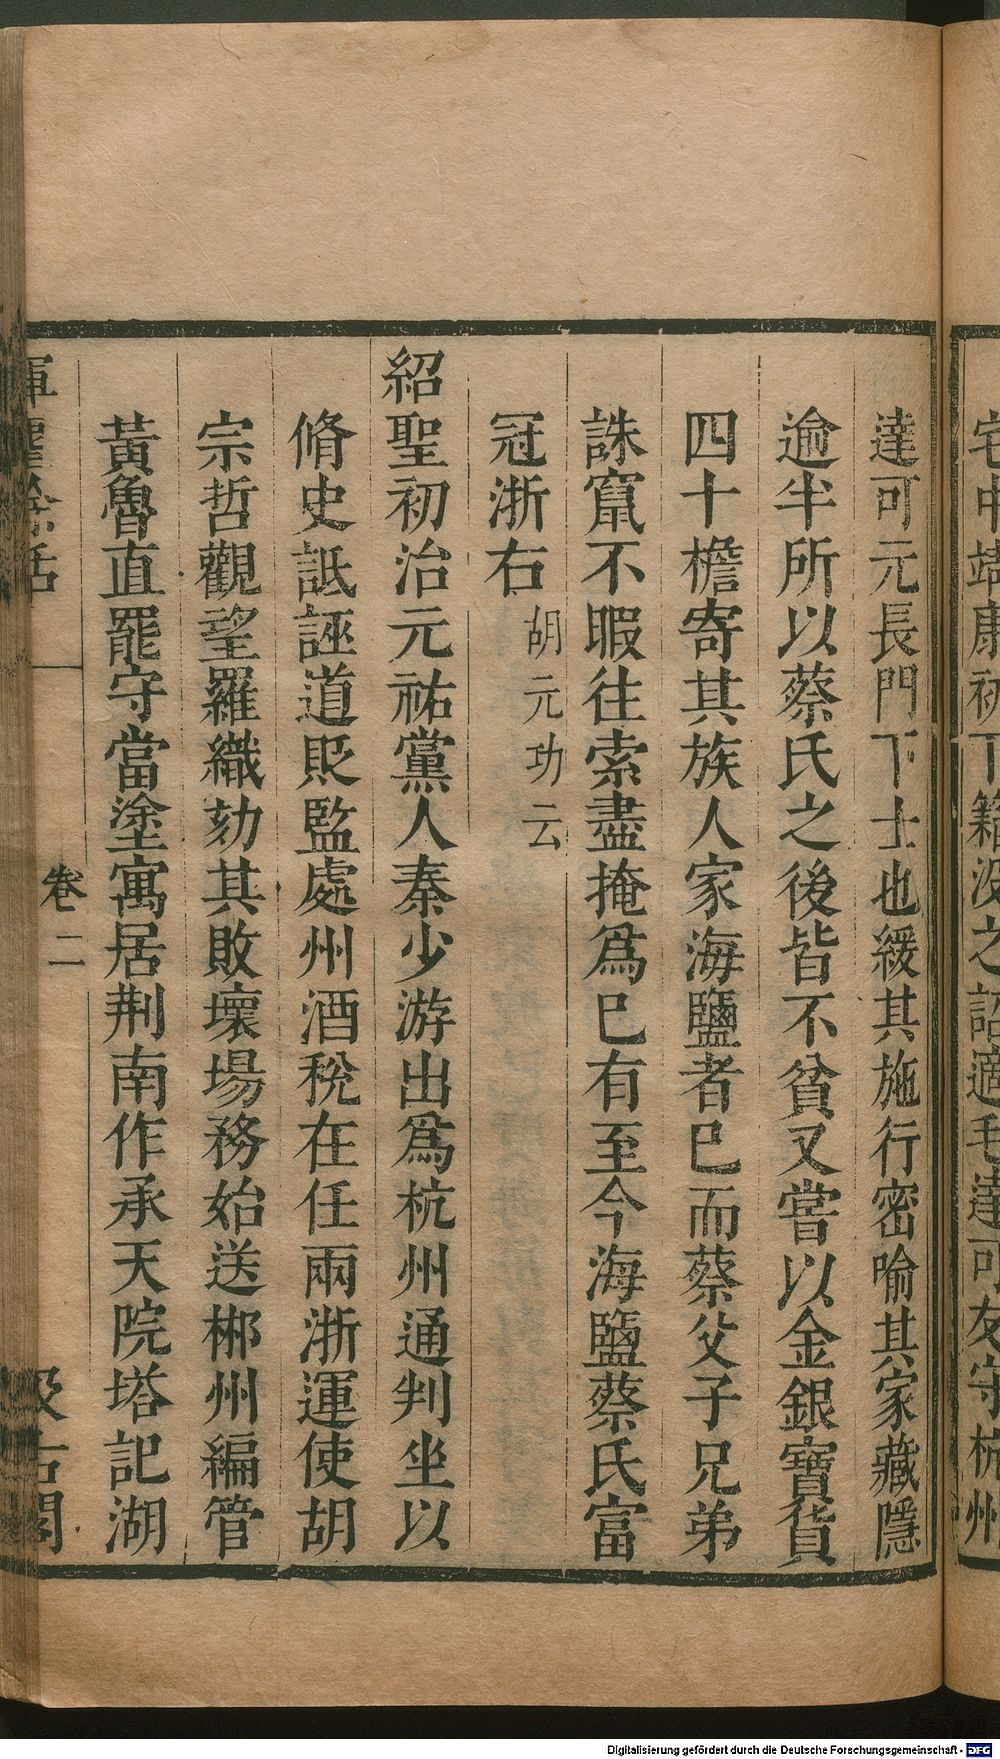 宅中靖康初下籍没之詔適毛達可友守杭州
達可元長門下士也緩其施行密喻其家藏隱
逾半所以蔡氏之後皆不貧又嘗以金銀寶貨
四十檐寄其族人家海鹽者已而蔡父子兄弟
誅竄不暇往索盡掩爲已有至今海鹽蔡氏富
冠浙右胡元功云
紹聖初治元祐黨人秦少游出爲杭州通判坐以
脩史詆誣道貶監處州酒稅在任兩浙運使胡
宗哲觀望羅織劾其敗壞場務始送郴州編管
黃魯直罷守當塗寓居荆南作承天院塔記湖
揮麈餘話 卷二 汲古閣
Digitalisierung gefördert durch die Deutsche Forschungsgemeinschaft - DFG